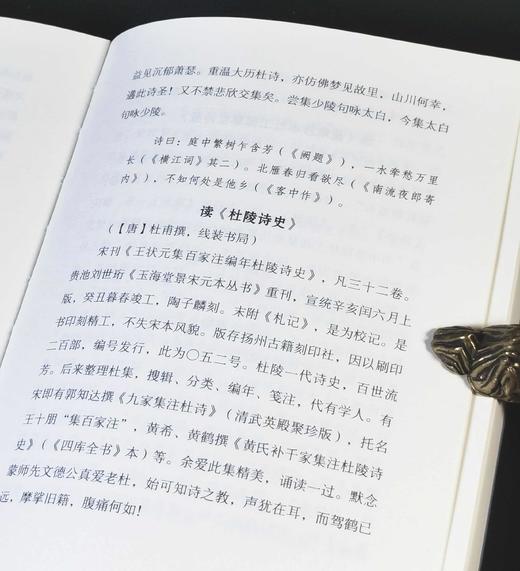 益见沉郁萧瑟。重温大历杜诗，亦仿佛梦见故里，山川何幸，
遇此诗圣！又不禁悲欣交集矣。尝集少陵句咏太白，今集太白
句咏少陵。
诗曰：庭中繁树乍含芳（《阙题》），一水牵愁万里
长（《横江词》其二）。北雁春归看欲尽（《南流夜郎寄
内》），不知何处是他乡（《客中作》）。
读《杜陵诗史》
（【唐】杜甫撰，线装书局）
宋刊《王状元集百家注编年杜陵诗史》，凡三十二卷。
贵池刘世珩《玉海堂景宋元本丛书》重刊，宣统辛亥闰六月上
版，癸丑暮春竣工，陶子麟刻。末附《札记》，是为校记。是
书印刻精工，不失宋本风貌。版存扬州古籍刻印社，因以刷印
二百部，编号发行，此为〇五二号。杜陵一代诗史，百世流
芳。后来整理杜集，搜辑、分类、编年、笺注，代有学人。有
宋即有郭知达撰《九家集注杜诗》（清武英殿聚珍版），托名
王十朋“集百家注”，黄希、黄鹤撰《黄氏补千家集注杜陵诗
史》（《四库全书》本）等。余爱此集精美，诵读一过。默念
蒙师先文德公真爱老杜，始可知诗之教，声犹在耳，而驾鹤已
远，摩挲旧籍，腹痛何如！